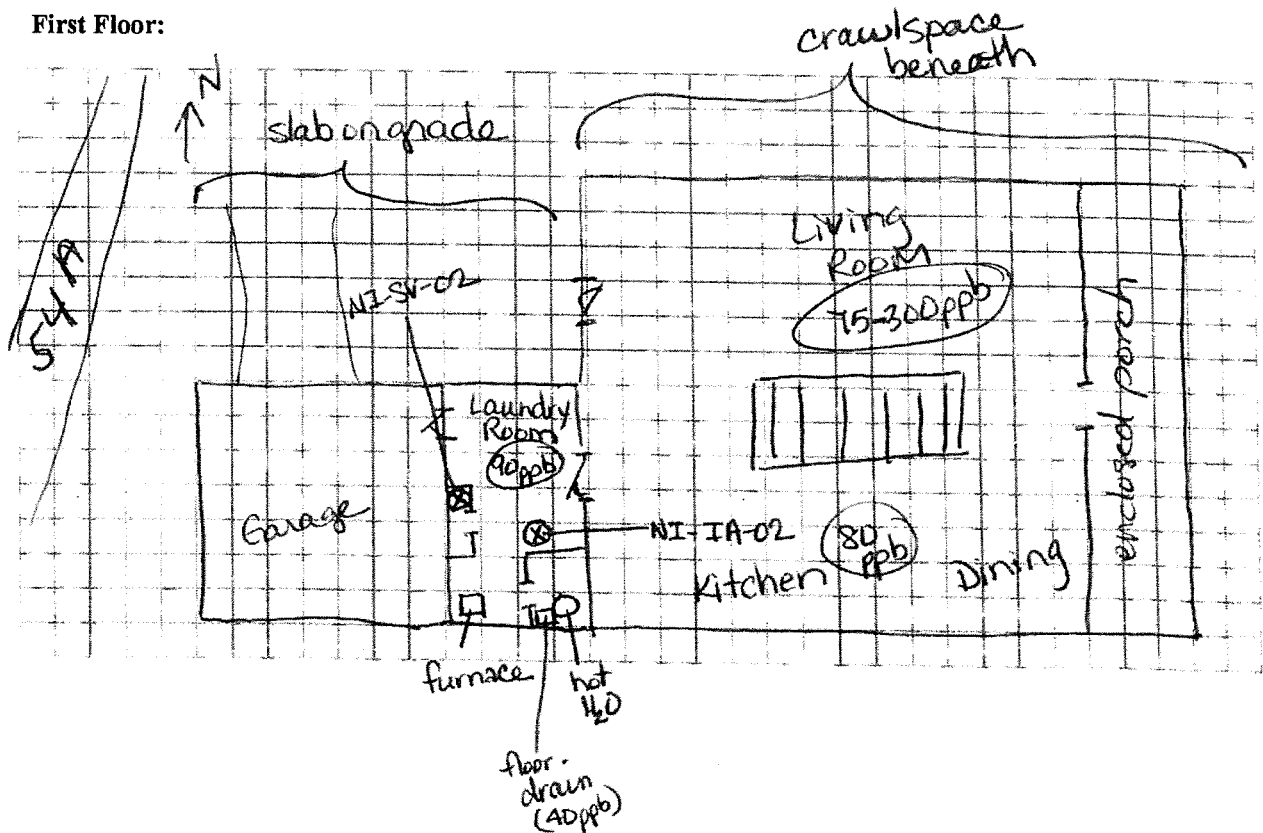 First Floor:
crawlspace
beneath
N
slab on grade
54 A
NI-SV-02
Living
Room
75-300ppb
Laundry
Room
90ppb
Garage
NI-IA-02
80
ppb
Kitchen
Dining
enclosed porch
furnace
hot
H2O
floor
drain
(40ppb)